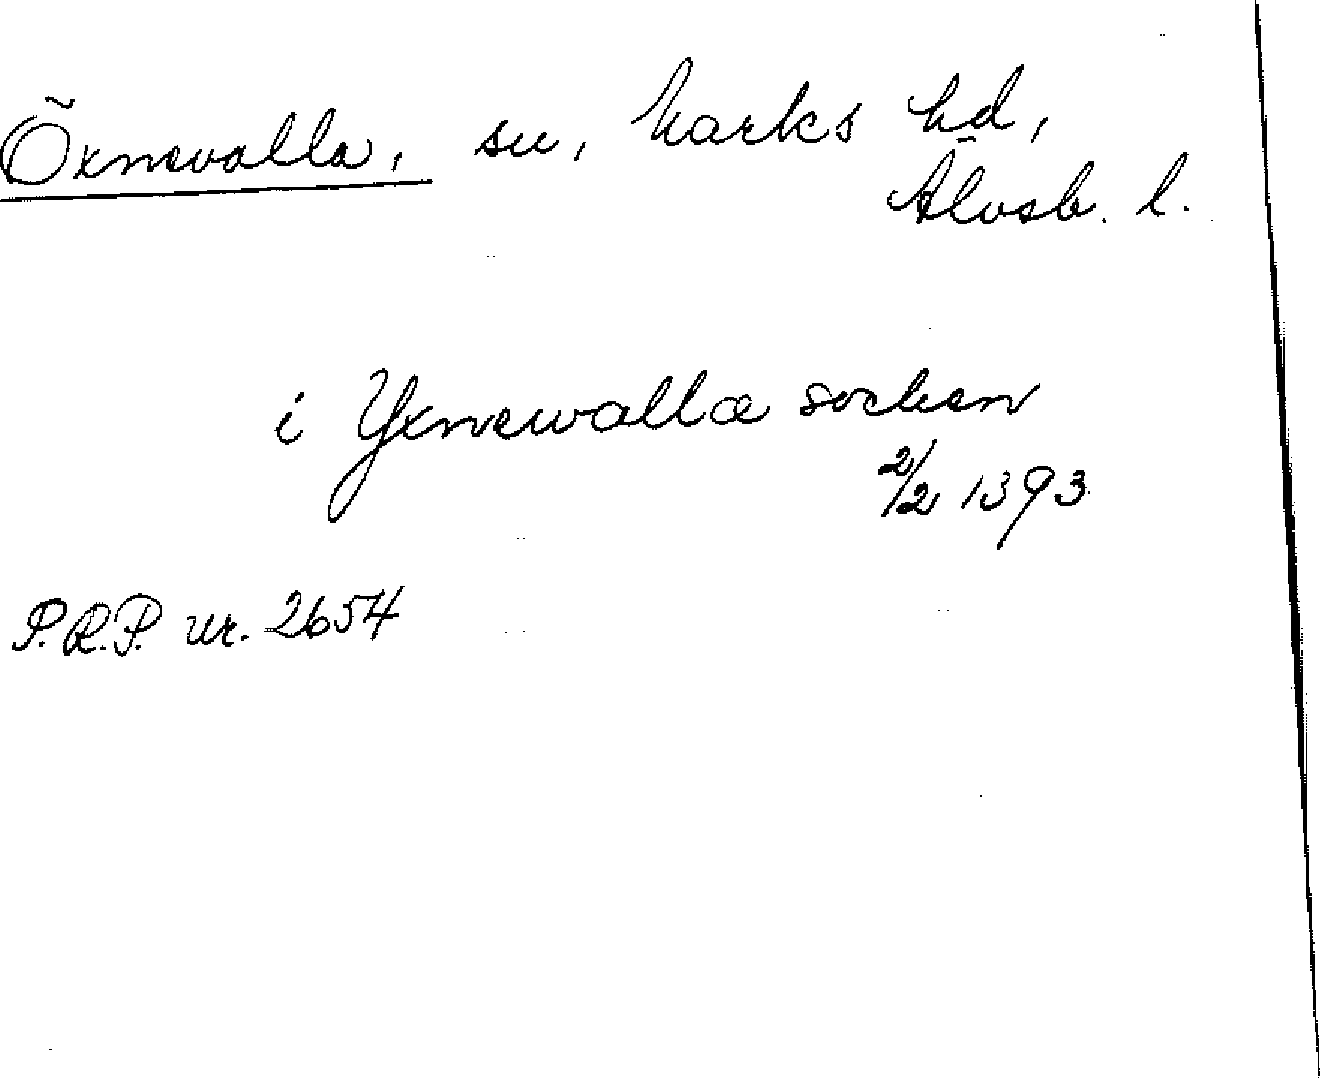 Öxnevalla, sn, Marks hd,
Älvsb. l.
i Yxnewalla socken
2/2 1393
P.R.P. nr. 2654